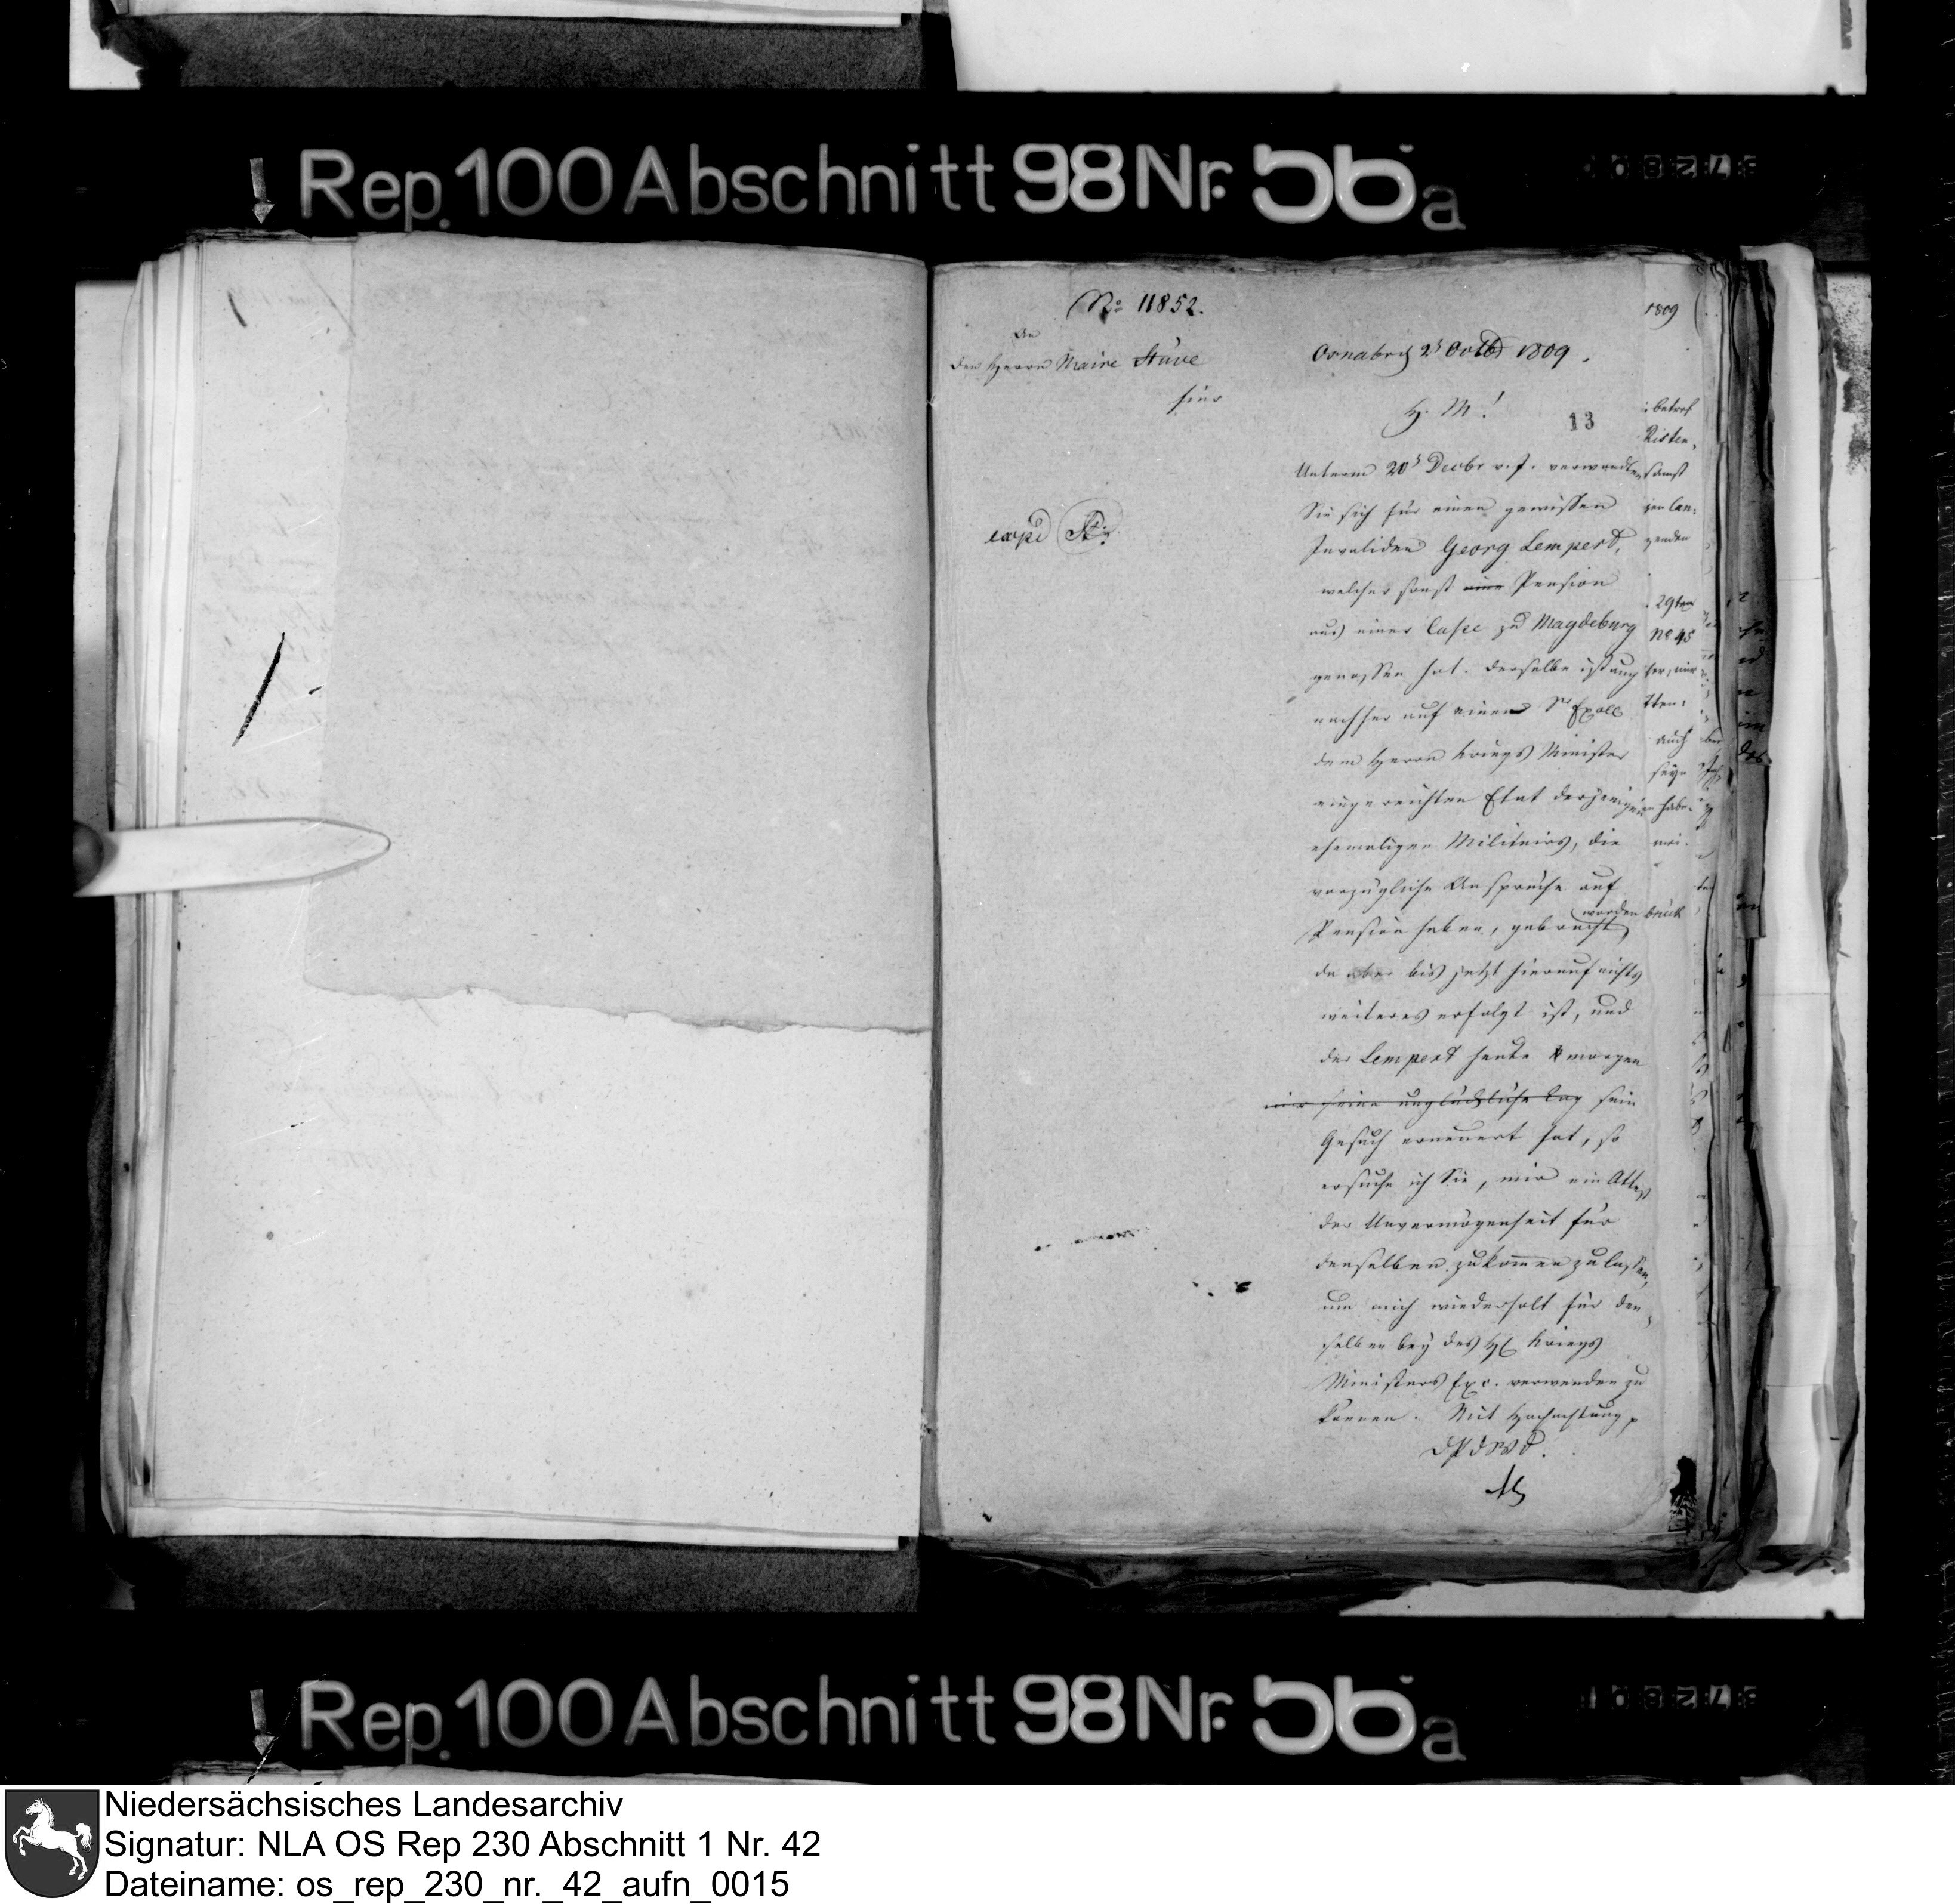 Rep. 100 Abschnitt 98 Nr. 56a
No 11852.
An
den Herrn Maire Stüve
hier
expd St.
1809
Osnabrck 2t Octb 1809.
H. M!
13
Unterm 20t Decbr v. J. verwendten
Sie sich für einen gewissen
Invaliden Georg Lempert,
welcher sonst eine Pension
aus einer Casse zu Magdeburg
genossen hat. Derselbe ist auch
nachher auf einen Sr Excell
dem Herrn Kriegs Minister
eingereichten Etat derjenigen
ehemaligen Militairs, die
vorzügliche Ansprüche auf
Pension haben, gebracht worden
da aber bis jetzt hierauf nichts
weiteres erfolgt ist, und
der Lempert heute morgen
mir seine unglückliche Lag sein
Gesuch erneuert hat, so
ersuche ich Sie, mir ein Attest
der Unvermögenheit für
denselben zukommen zu lassen,
um mich wiederholt für den
selben bey des H Kriegs
Ministers Exc. verwenden zu
können. Mit Hochachtung
betref
Risten
sonst
gen Can:
genden
29ten
No 45
her, mir
tten:
auch
seyn
habe.
brück
Rep. 100 Abschnitt 98 Nr. 56a
Niedersächsisches Landesarchiv
Signatur: NLA OS Rep 230 Abschnitt 1 Nr. 42
Dateiname: os_rep_230_nr._42_aufn_0015